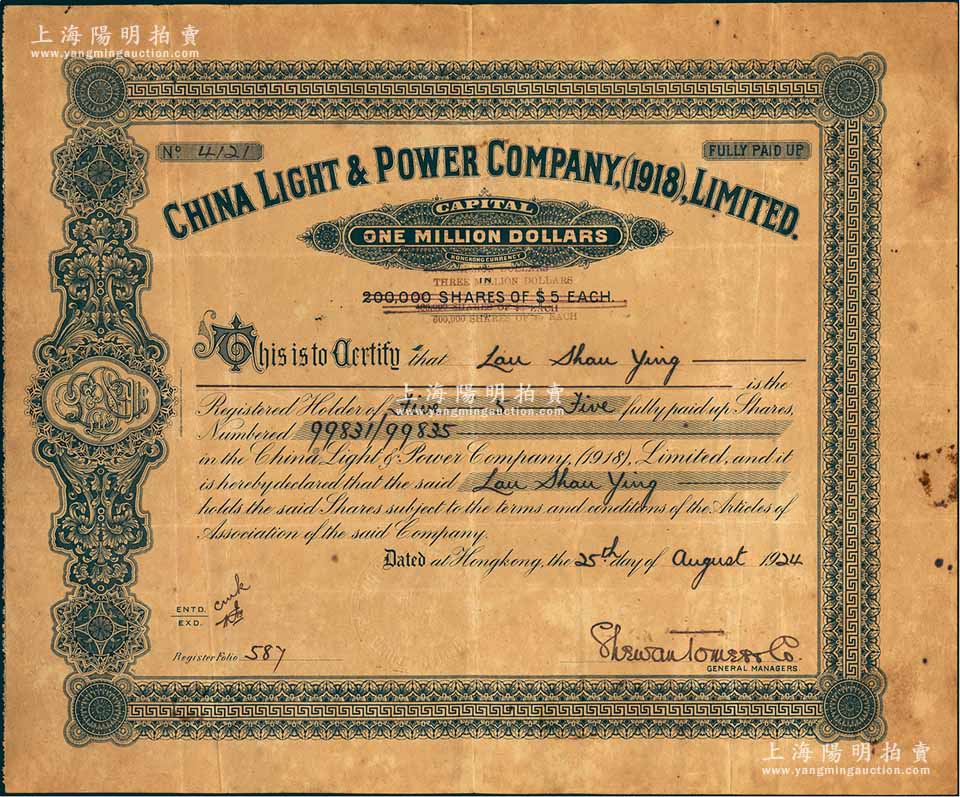 上海陽明拍賣
www.yangmingauction.com
Nº 4121
FULLY PAID UP
CHINA LIGHT & POWER COMPANY, (1918), LIMITED.
CAPITAL
ONE MILLION DOLLARS
HONGKONG CURRENCY
DOLLARS
IN
THREE MILLION DOLLARS
200,000 SHARES OF $5 EACH.
SHARES OF EACH
600,000 SHARES OF $5 EACH
This is to Certify that Lau Shau Ying
is the
上海陽明拍賣
www.yangmingauction.com
Registered Holder of Five Five fully paid up Shares,
Numbered 99831/99835
in the China Light & Power Company, (1918), Limited, and it
is hereby declared that the said Lau Shau Ying
holds the said Shares subject to the terms and conditions of the Articles of
Association of the said Company.
Dated at Hongkong, the 25th day of August 1924
ENTD.
EXD.
Register Folio 587
Shewan Tomes & Co.
GENERAL MANAGERS.
上海陽明拍賣
www.yangmingauction.com